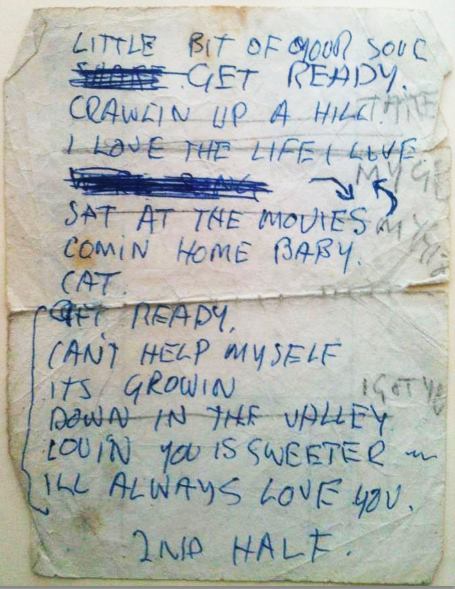 LITTLE BIT OF YOUR SOUL
GET READY.
CRAWLIN UP A HILL.
I LOVE THE LIFE I LIVE
SAT AT THE MOVIES
COMIN HOME BABY.
CAT.
GET READY.
CAN'T HELP MYSELF
ITS GROWIN
DOWN IN THE VALLEY
LOVIN YOU IS SWEETER
ILL ALWAYS LOVE YOU.
2ND HALF.
TAKE
MY
MY
I GOT YO